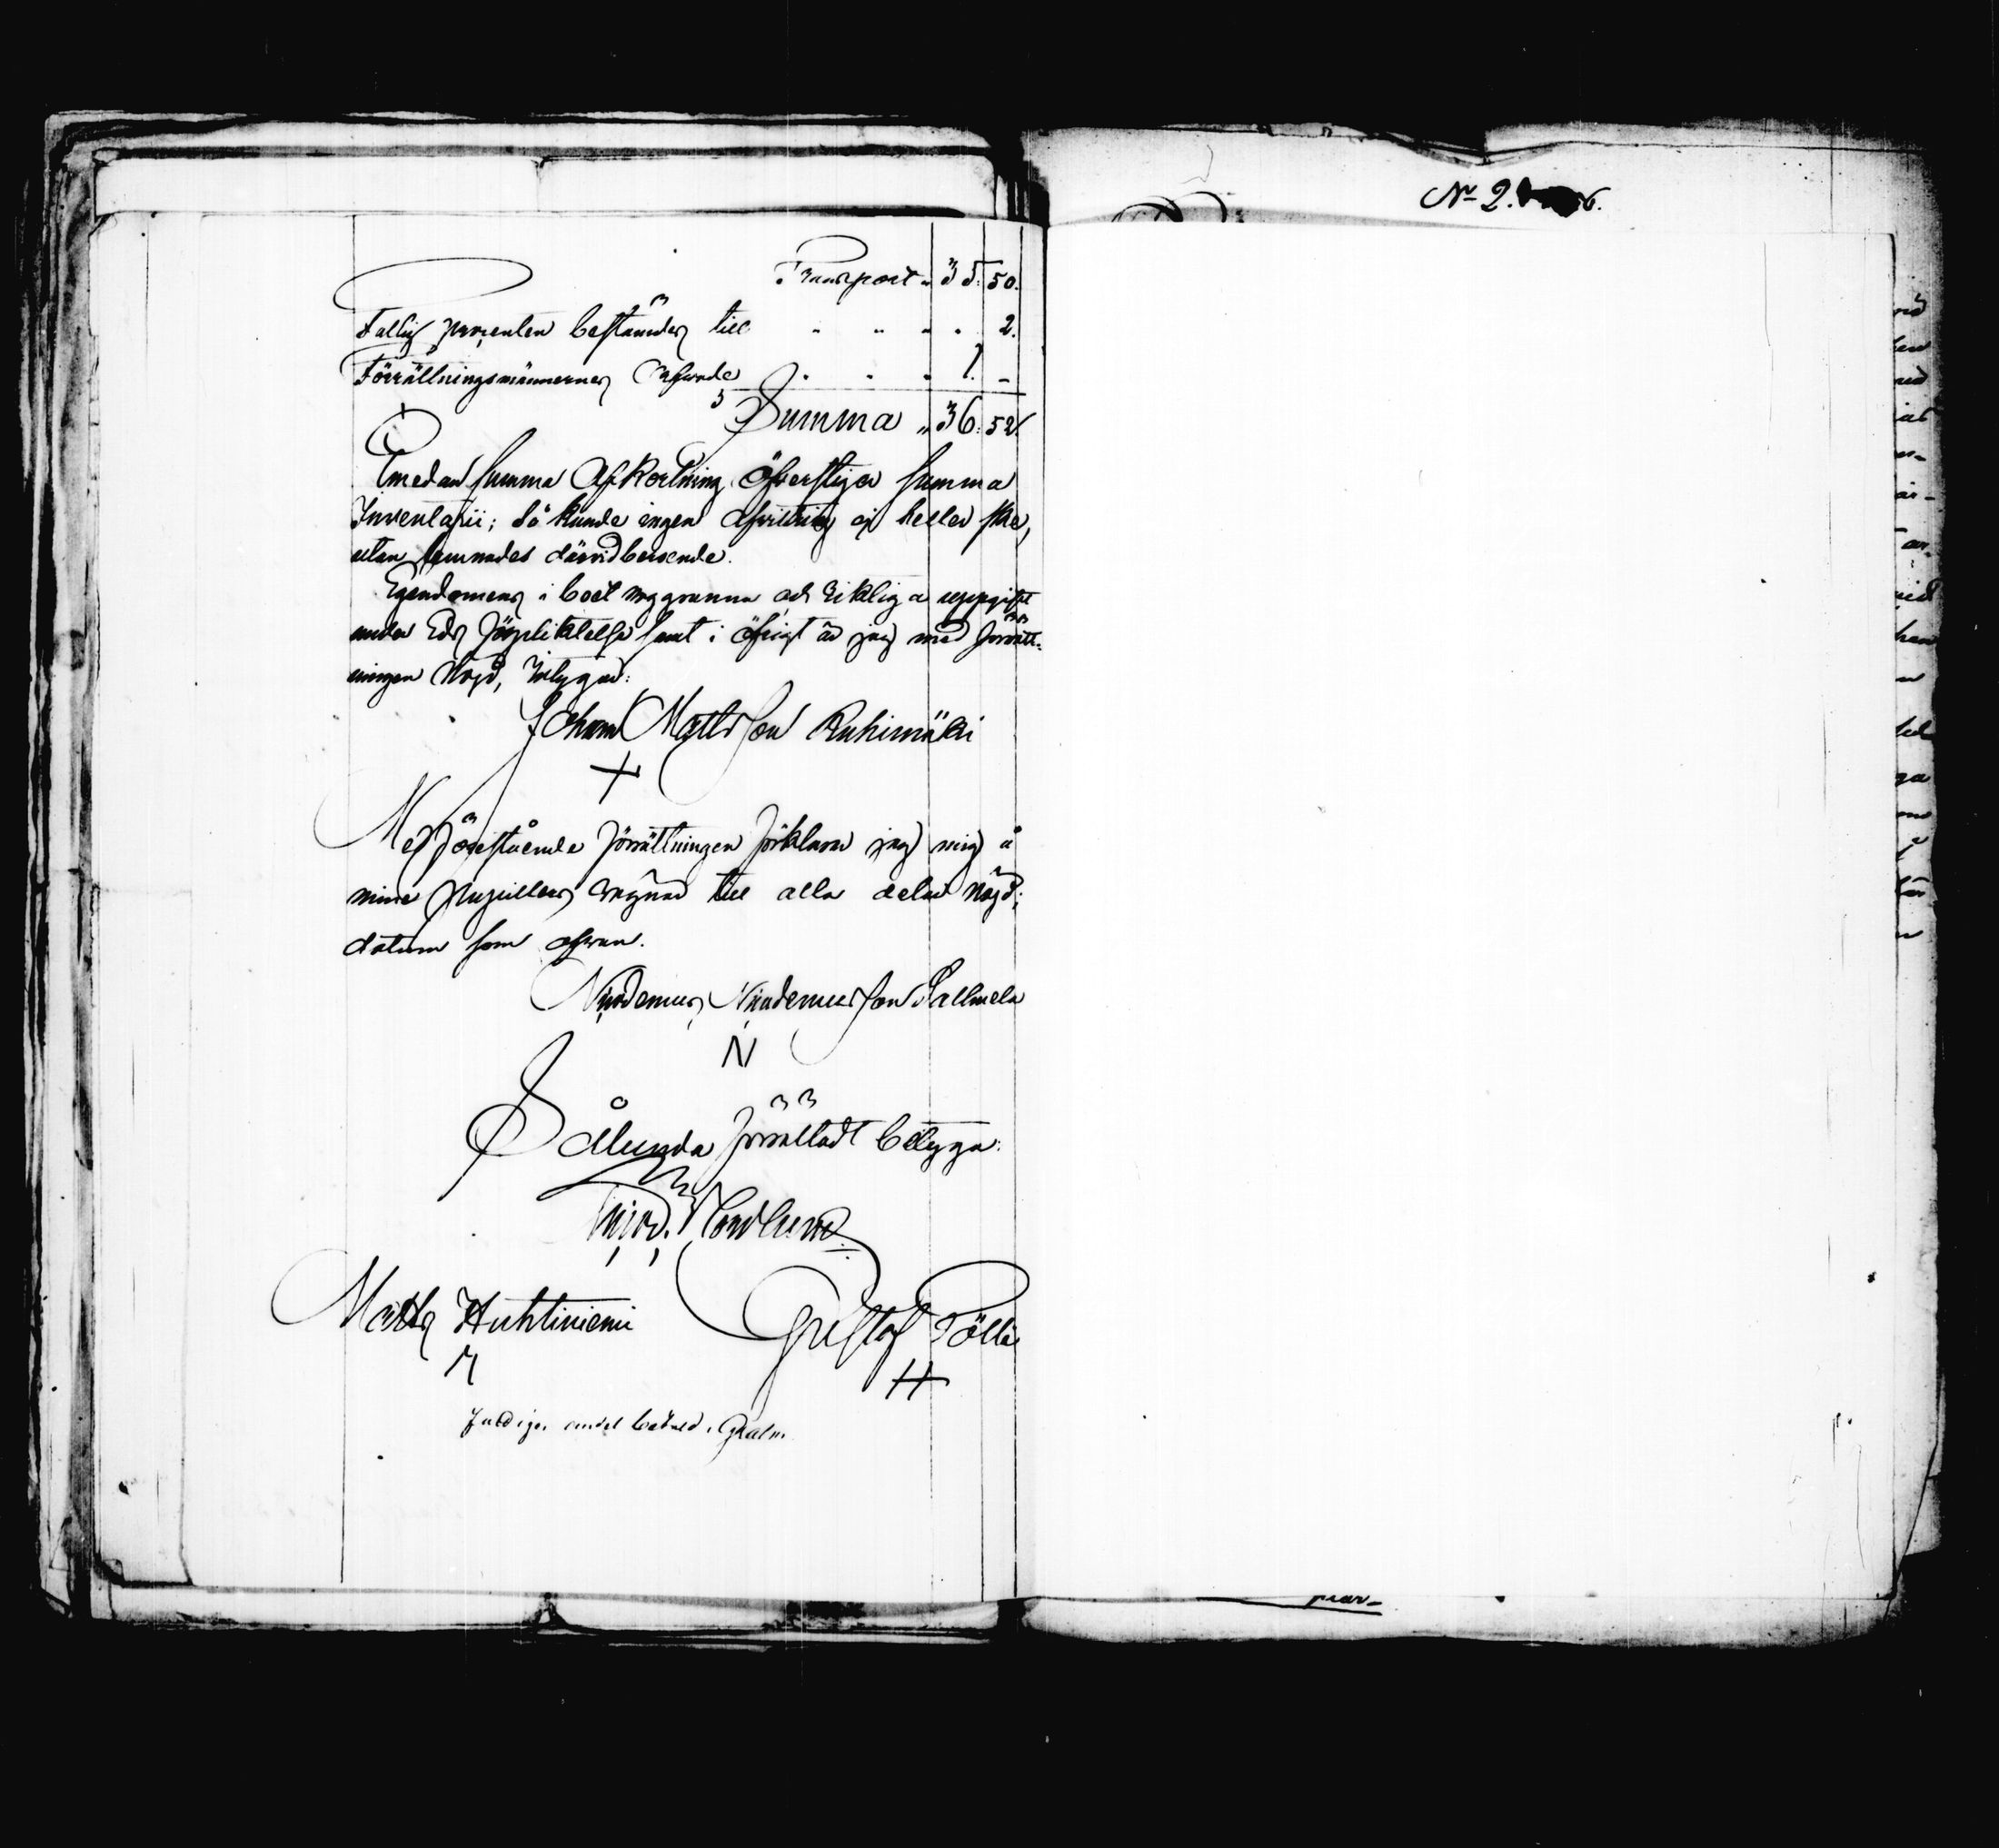 Transport " 35. 50.
Fattig procenten bestämdes till " " " " 2.
Förrättningsmännernes Arfvode " " " 1. –
Summa " 36. 52.
Emedan Summa Afkortning öfverstiger Summa
Inventarii; så kunde ingen Afvittring ej heller ske,
utan lemnades därvid beroende.
Egendomens i boet noggranna och riktiga uppgift
under Eds förpliktelse samt i öfrigt är jag med förrätt-
ningen nöjd, intygar:
Johan Matts Son Ruhimäki
Med förestående förrättningen förklarar jag mig å
mine Pupillers vägnar till alla delar nöjd;
datum som ofvan.
Nicodemus Nicodemus Son Pallmela
N
Sålunda förrättadt betyga:
Matts Huhtiniemi
Gustaf Pölle
M
H
andel betald.
No 2. 6.